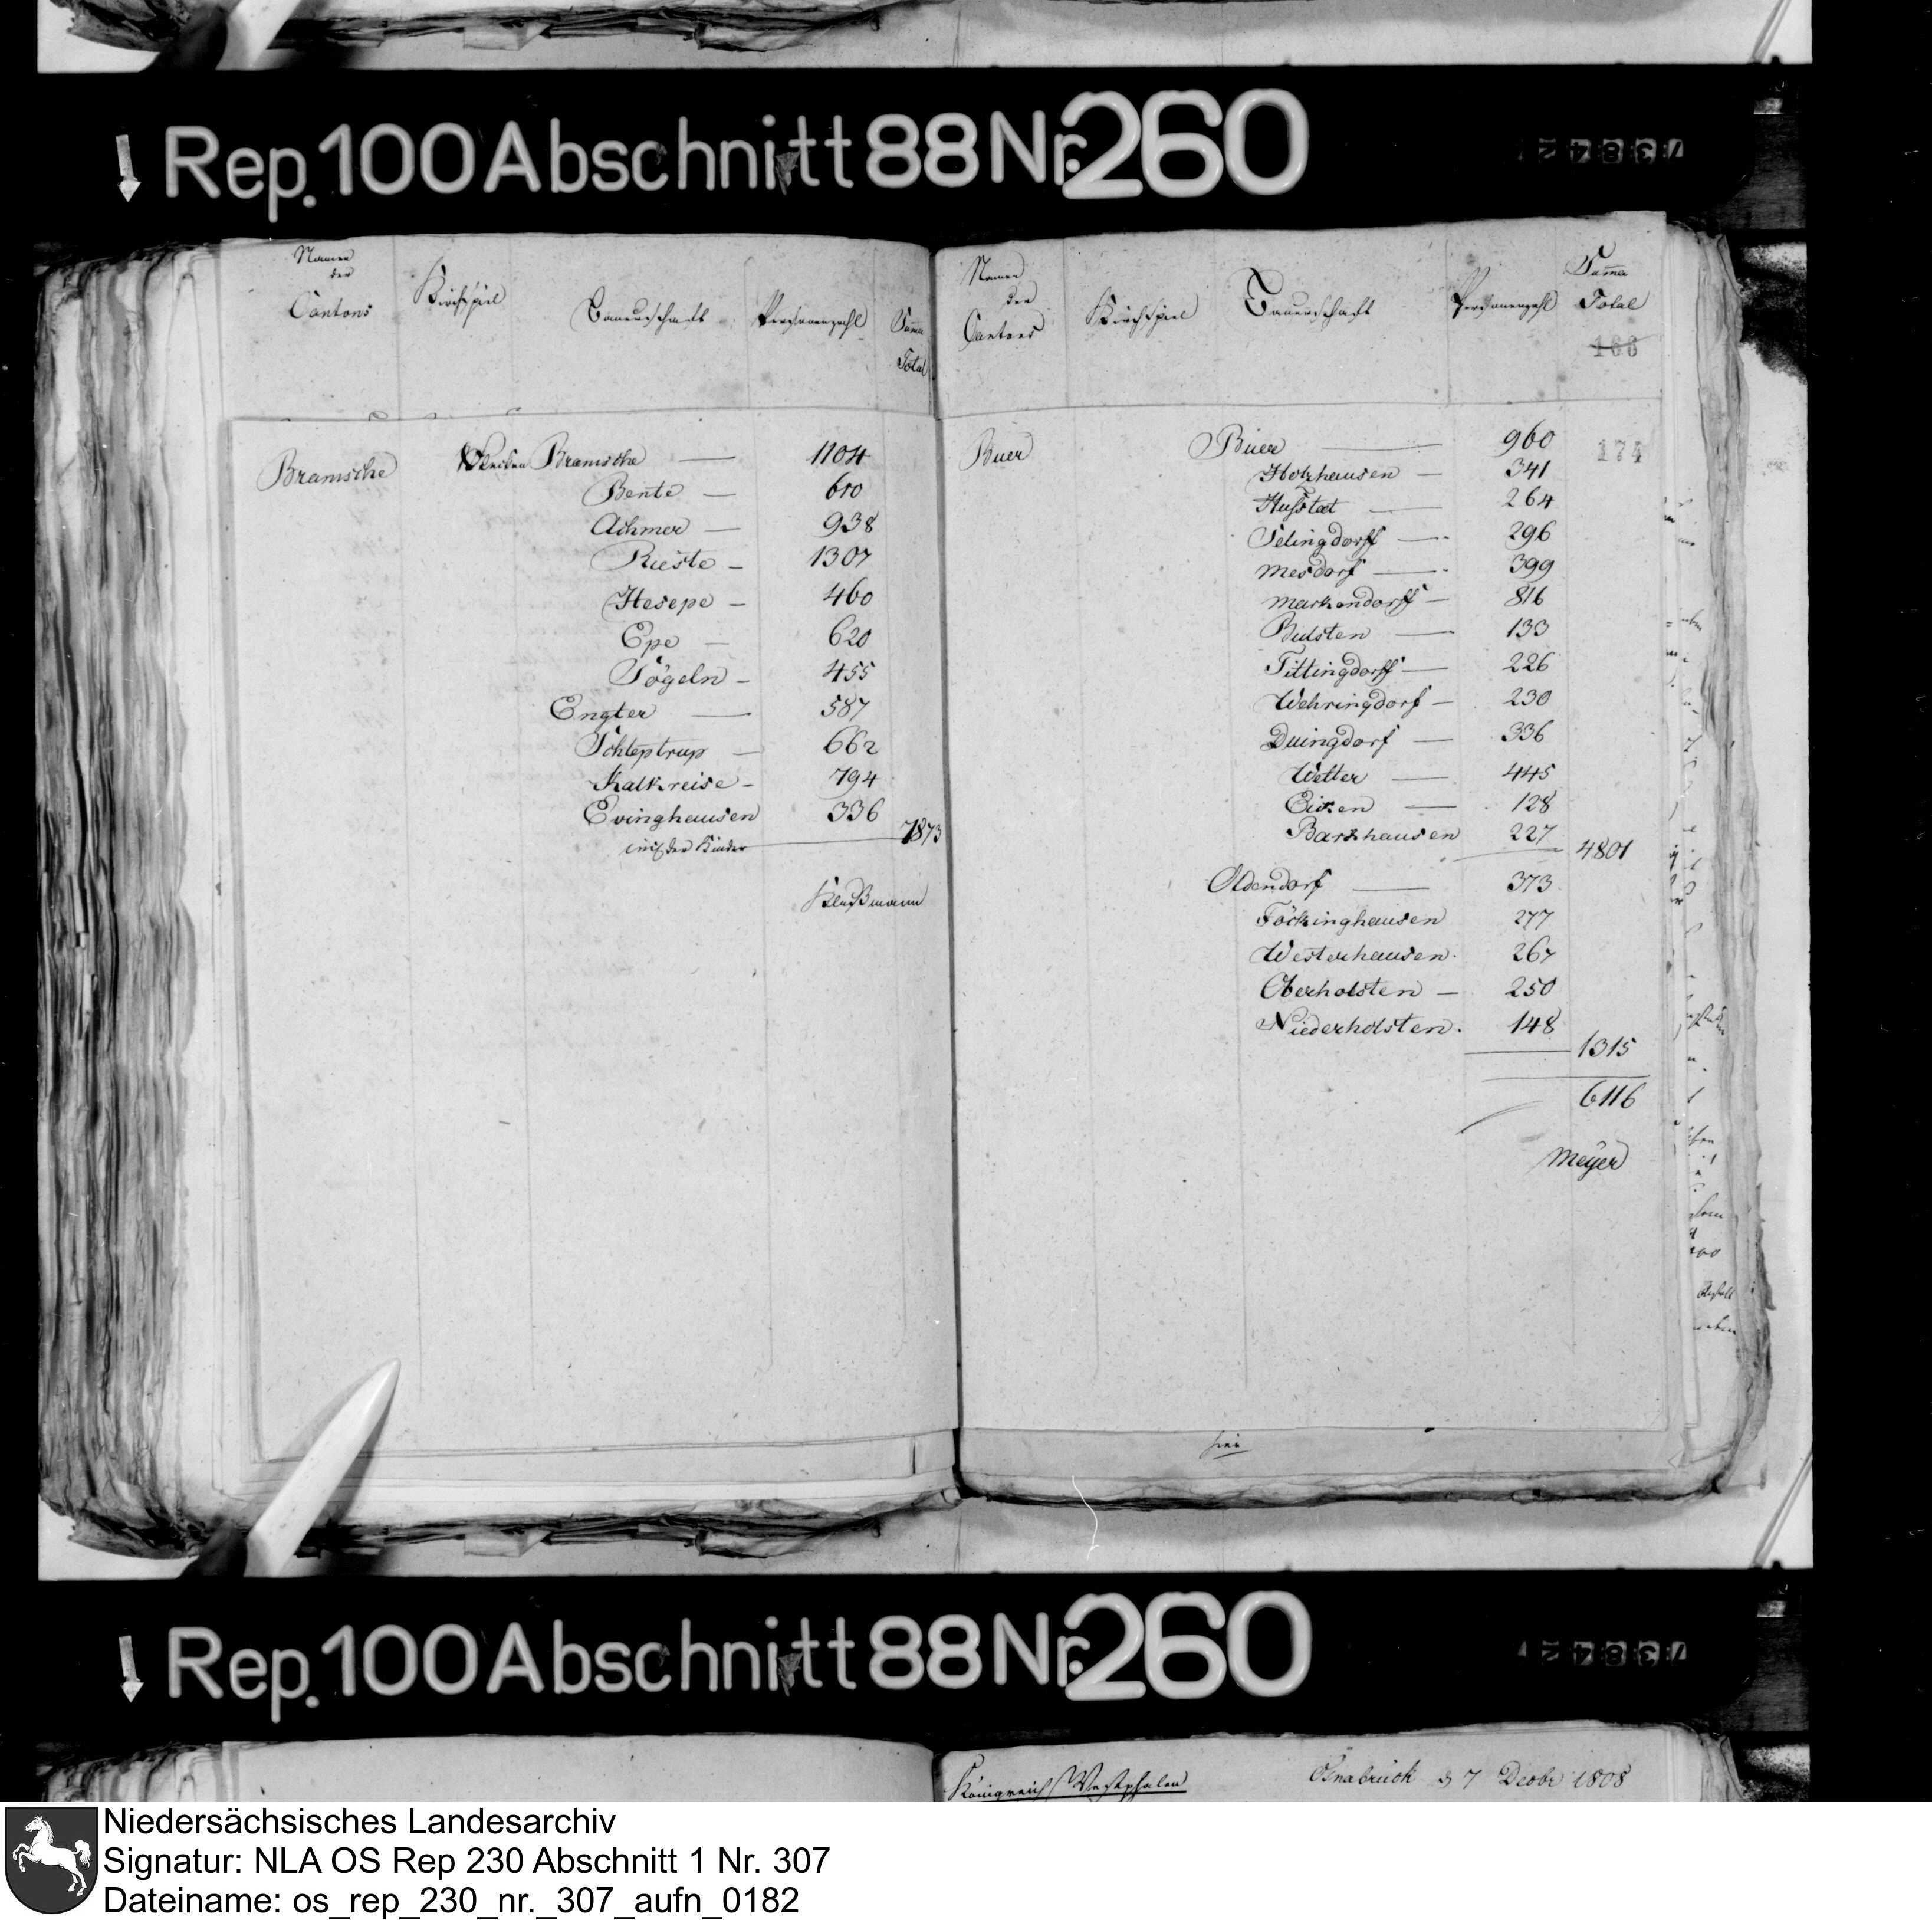 Rep. 100 Abschnitt 88 Nr. 260
Namen
der
Cantons
Kirchspiel
Bauerschaft
Personenzahl
Summa
Total
Bramsche
Bramsche — 1104
Bente — 610
Achmer — 938
Rieste — 1307
Hesepe — 460
Epe — 620
Sögeln — 455
Engter — 587
Schleptrup — 662
Kalkreise — 794
Evinghausen 336
7873
der Kinder
Namen
der
Cantons
Kirchspiel
Bauerschaft
Personenzahl
Summa
Total
166
174
Buer
Buer — 960
Holzhausen — 341
Husstaet — 264
Selingdorff — 296
Mesdorf — 399
Markendorff — 816
Bulsten — 133
Tittingdorff — 226
Wehringdorf — 230
Duingdorf — 336
Wetter — 445
Eiken — 128
Barkhausen 227
4801
Oldendorf — 373
Föckinghausen 277
Westerhausen. 267
Oberholsten — 250
Niederholsten. 148
1315
6116
Meyer
hier
Rep. 100 Abschnitt 88 Nr. 260
Königreich Westphalen
Osnabrück d 7 Decbr 1808
Niedersächsisches Landesarchiv
Signatur: NLA OS Rep 230 Abschnitt 1 Nr. 307
Dateiname: os_rep_230_nr._307_aufn_0182